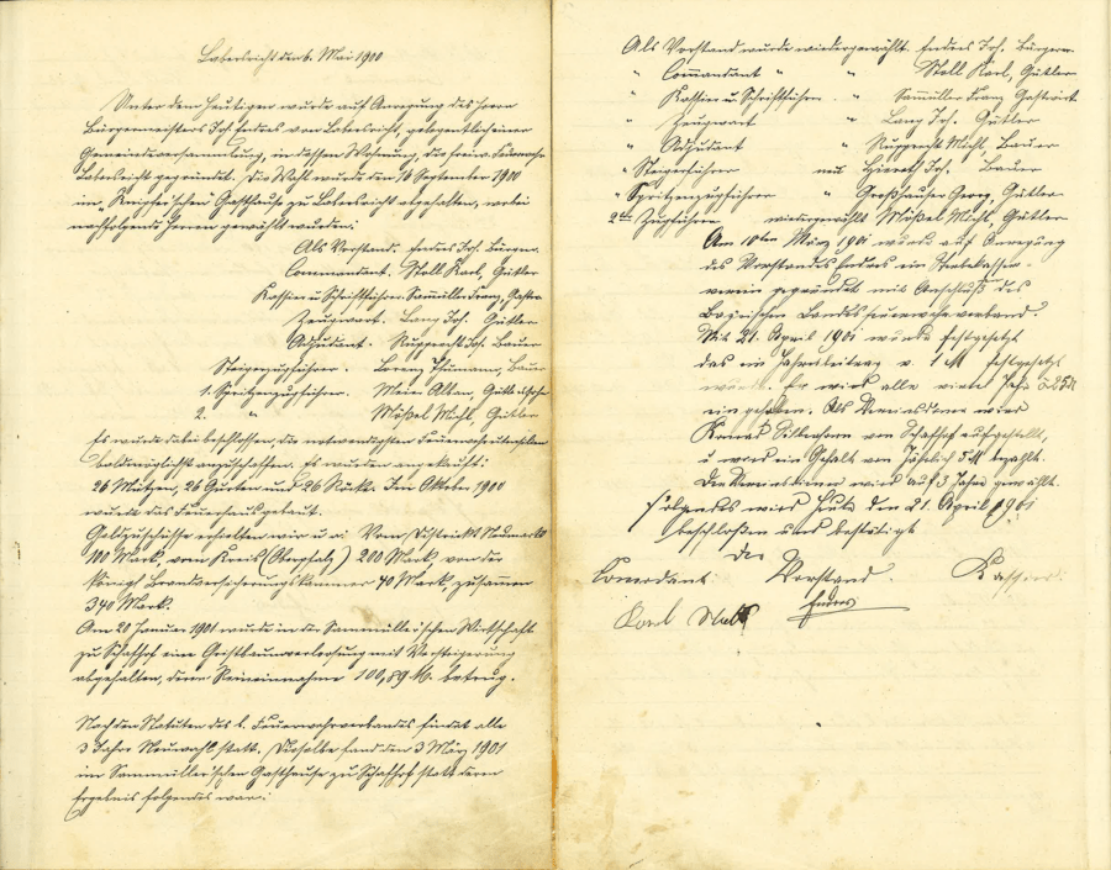 Labersricht den 6. Mai 1900
Unter dem Heutigen wurde auf Anregung des Herrn
Bürgermeisters Joh. Endres von Labersricht, gelegentlich einer
Gemeindeversammlung, in dessen Wohnung, die freiw. Feuerwehr
Labersricht gegründet. Die Wahl wurde den 16 September 1900
im Gasthause zu Labersricht abgehalten, wobei
nachfolgende Herren gewählt wurden:
Als Vorstand. Endres Joh. Bürgerm.
Commandant. Stoll Karl, Gütler
Kassier u. Schriftführer. Samüller Franz, Gastw.
Zeugwart. Lang Joh. Gütler
Adjudant. Rupprecht Joh. Bauer
Steigerzugführer. Lorenz Thumann, Bauer
1. Spritzenzugführer. Meier Alban,
2. " Mößel Michl, Gütler
Es wurde dabei beschlossen, die notwendigsten Feuerwehrutensilien
baldmöglichst anzuschaffen. Es wurden angekauft:
26 Mützen, 26 Gurten und 26 Röcke. Im Oktober 1900
wurde das Feuerhaus gebaut.
Geldzuschüsse erhielten wir u. a: Vom Distrikt Neumarkt
100 Mark, vom Kreis (Oberpfalz) 200 Mark, von der
königl. Brandversicherungskammer 40 Mark, zusammen
340 Mark.
Am 20 Januar 1901 wurde in der Sammüller'schen Wirtschaft
zu Schafhof eine Christbaumverlosung mit Versteigerung
abgehalten, deren Reineinnahme 100,89 M. betrug.
Nach den Statuten des b. Feuerwehrverbandes findet alle
3 Jahre Neuwahl statt. Dieselbe fand den 3 März 1901
im Sammüller'schen Gasthause zu Schafhof statt deren
Ergebnis folgendes war:
Als Vorstand wurde wiedergewählt Endres Joh. Bürgerm.
" Commandant " " Stoll Karl, Gütler
" Kassier u. Schriftführer. " Samüller Franz Gastwirt
" Zeugwart " Lang Joh. Gütler
" Adjudant " Rupprecht Michl, Bauer
" Steigerführer neu Hierath Joh. Bauer
" Spritzenzugführer " Großhauser Georg, Gütler
2ter Zugführer wiedergewählt Mößel Michl, Gütler
Am 10ten März 1901 wurde auf Anregung
des Vorstandes Endres ein Sterbekassen-
verein gegründet mit Anschluß des
Bayrischen Landesfeuerwehrverband.
Mit 21. April 1901 wurde festgesetzt
das ein Jahresbeitrag v. 1 M festgesetzt
wurde. Er wird alle viertel Jahr à 25 ₰
eingehoben. Als Vereinsdiener wird
Konrad Silberhorn von Schafhof aufgestellt,
u wird ein Gehalt von Jährlich 5 M bezahlt.
Der Vereinsdiener wird auf 3 Jahre gewählt.
Folgendes wird Heute den 21. April 1901
beschloßen und bestätigt
Der
Comodant: Vorstand. Kassier:
Karl Stoll Endres